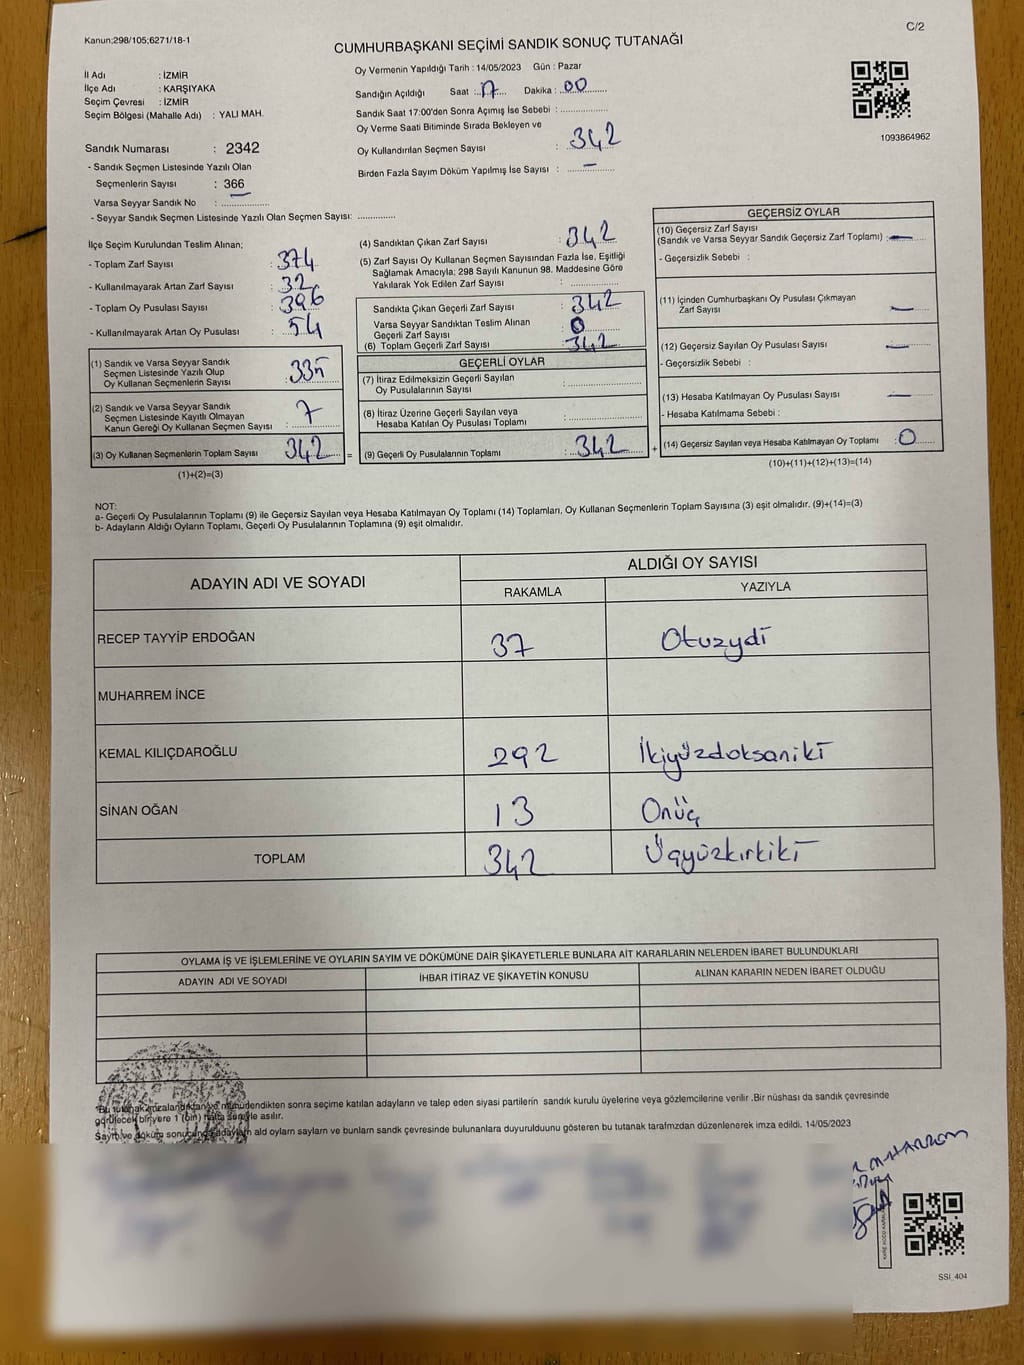 Kanun;298/105;6271/18-1
C/2
CUMHURBAŞKANI SEÇİMİ SANDIK SONUÇ TUTANAĞI
İl Adı : İZMİR
İlçe Adı : KARŞIYAKA
Seçim Çevresi : İZMİR
Seçim Bölgesi (Mahalle Adı) : YALI MAH.
Sandık Numarası : 2342
- Sandık Seçmen Listesinde Yazılı Olan
Seçmenlerin Sayısı : 366
Varsa Seyyar Sandık No : —
- Seyyar Sandık Seçmen Listesinde Yazılı Olan Seçmen Sayısı: ..............
Oy Vermenin Yapıldığı Tarih : 14/05/2023 Gün : Pazar
Sandığın Açıldığı Saat : 17 Dakika : 00
Sandık Saat 17:00'den Sonra Açımış İse Sebebi : ..............
Oy Verme Saati Bitiminde Sırada Bekleyen ve
Oy Kullandırılan Seçmen Sayısı : 342
Birden Fazla Sayım Döküm Yapılmış İse Sayısı : —
1093864962
İlçe Seçim Kurulundan Teslim Alınan;
- Toplam Zarf Sayısı : 374
- Kullanılmayarak Artan Zarf Sayısı : 32
- Toplam Oy Pusulası Sayısı : 396
- Kullanılmayarak Artan Oy Pusulası : 54
(1) Sandık ve Varsa Seyyar Sandık
Seçmen Listesinde Yazılı Olup
Oy Kullanan Seçmenlerin Sayısı : 335
(2) Sandık ve Varsa Seyyar Sandık
Seçmen Listesinde Kayıtlı Olmayan
Kanun Gereği Oy Kullanan Seçmen Sayısı : 7
(3) Oy Kullanan Seçmenlerin Toplam Sayısı : 342 =
(1)+(2)=(3)
(4) Sandıktan Çıkan Zarf Sayısı : 342
(5) Zarf Sayısı Oy Kullanan Seçmen Sayısından Fazla İse, Eşitliği
Sağlamak Amacıyla; 298 Sayılı Kanunun 98. Maddesine Göre
Yakılarak Yok Edilen Zarf Sayısı : ..............
Sandıkta Çıkan Geçerli Zarf Sayısı : 342
Varsa Seyyar Sandıktan Teslim Alınan
Geçerli Zarf Sayısı : 0
(6) Toplam Geçerli Zarf Sayısı : 342
GEÇERLİ OYLAR
(7) İtiraz Edilmeksizin Geçerli Sayılan
Oy Pusulalarının Sayısı : ..............
(8) İtiraz Üzerine Geçerli Sayılan veya
Hesaba Katılan Oy Pusulası Toplamı : ..............
(9) Geçerli Oy Pusulalarının Toplamı : 342 +
GEÇERSİZ OYLAR
(10) Geçersiz Zarf Sayısı
(Sandık ve Varsa Seyyar Sandık Geçersiz Zarf Toplamı) : —
- Geçersizlik Sebebi :
(11) İçinden Cumhurbaşkanı Oy Pusulası Çıkmayan
Zarf Sayısı —
(12) Geçersiz Sayılan Oy Pusulası Sayısı : —
- Geçersizlik Sebebi :
(13) Hesaba Katılmayan Oy Pusulası Sayısı : —
- Hesaba Katılmama Sebebi :
(14) Geçersiz Sayılan veya Hesaba Katılmayan Oy Toplamı : 0
(10)+(11)+(12)+(13)=(14)
NOT:
a- Geçerli Oy Pusulalarının Toplamı (9) ile Geçersiz Sayılan veya Hesaba Katılmayan Oy Toplamı (14) Toplamları, Oy Kullanan Seçmenlerin Toplam Sayısına (3) eşit olmalıdır. (9)+(14)=(3)
b- Adayların Aldığı Oyların Toplamı, Geçerli Oy Pusulalarının Toplamına (9) eşit olmalıdır.
ADAYIN ADI VE SOYADI ALDIĞI OY SAYISI
RAKAMLA YAZIYLA
RECEP TAYYİP ERDOĞAN 37 Otuzydi
MUHARREM İNCE
KEMAL KILIÇDAROĞLU 292 İkiyüzdoksaniki
SİNAN OĞAN 13 Onüç
TOPLAM 342 Üçyüzkırkiki
OYLAMA İŞ VE İŞLEMLERİNE VE OYLARIN SAYIM VE DÖKÜMÜNE DAİR ŞİKAYETLERLE BUNLARA AİT KARARLARIN NELERDEN İBARET BULUNDUKLARI
ADAYIN ADI VE SOYADI İHBAR İTİRAZ VE ŞİKAYETİN KONUSU ALINAN KARARIN NEDEN İBARET OLDUĞU
*Bu tutanak imzalandıktan ve mühürlendikten sonra seçime katılan adayların ve talep eden siyasi partilerin sandık kurulu üyelerine veya gözlemcilerine verilir .Bir nüshası da sandık çevresinde
görülecek bir yere 1 (bir) hafta süreyle asılır.
Sayım ve döküm sonucunda adayların ald oyların saylarn ve bunlarn sandk çevresinde bulunanlara duyurulduunu gösteren bu tutanak tarafmzdan düzenlenerek imza edildi. 14/05/2023
MUHARREM
SSI_404